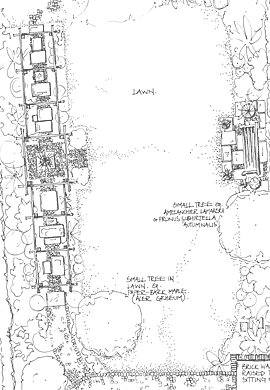 LAWN.
SMALL TREE EG.
AMELANCHIER LAMARKII
& PRUNUS SUBHIRTELLA
'AUTUMNALIS'
SMALL TREE IN
LAWN. EG.
PAPER-BARK MAPLE.
(ACER GRISEUM)
BRICK WA
RAISED
SITTING